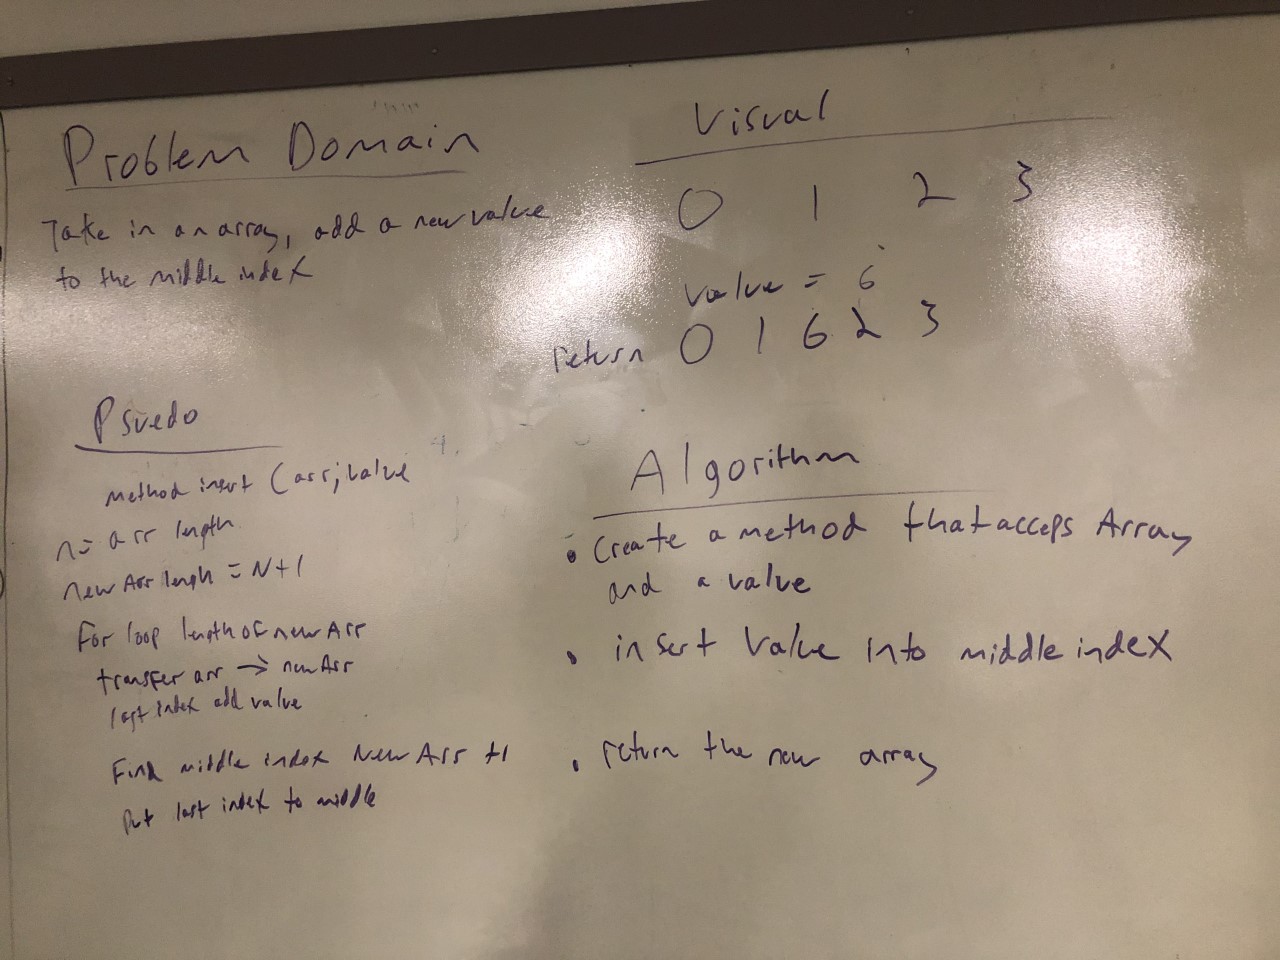 Problem Domain
Take in an array, add a new value
to the middle index
Visual
0 1 2 3
value = 6
return 0 1 6 2 3
Psuedo
method insert (arr, value
n = arr length
new Arr length = N+1
For loop length of new Arr
transfer arr → new Arr
last index add value
Find middle index New Arr +1
Put last index to middle
Algorithm
• Create a method that acceps Array
and a value
• insert Value into middle index
• return the new array